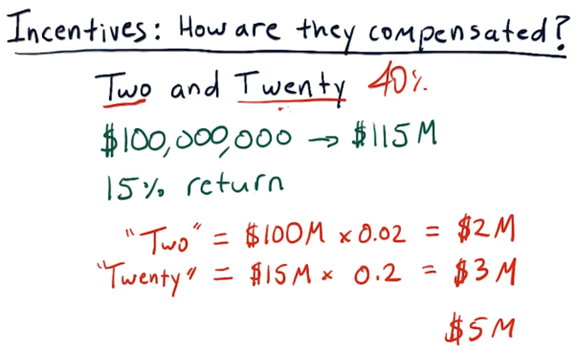 Incentives: How are they compensated?
Two and Twenty 40%
$100,000,000 → $115M
15% return
"Two" = $100M x 0.02 = $2M
"Twenty" = $15M x 0.2 = $3M
$5M